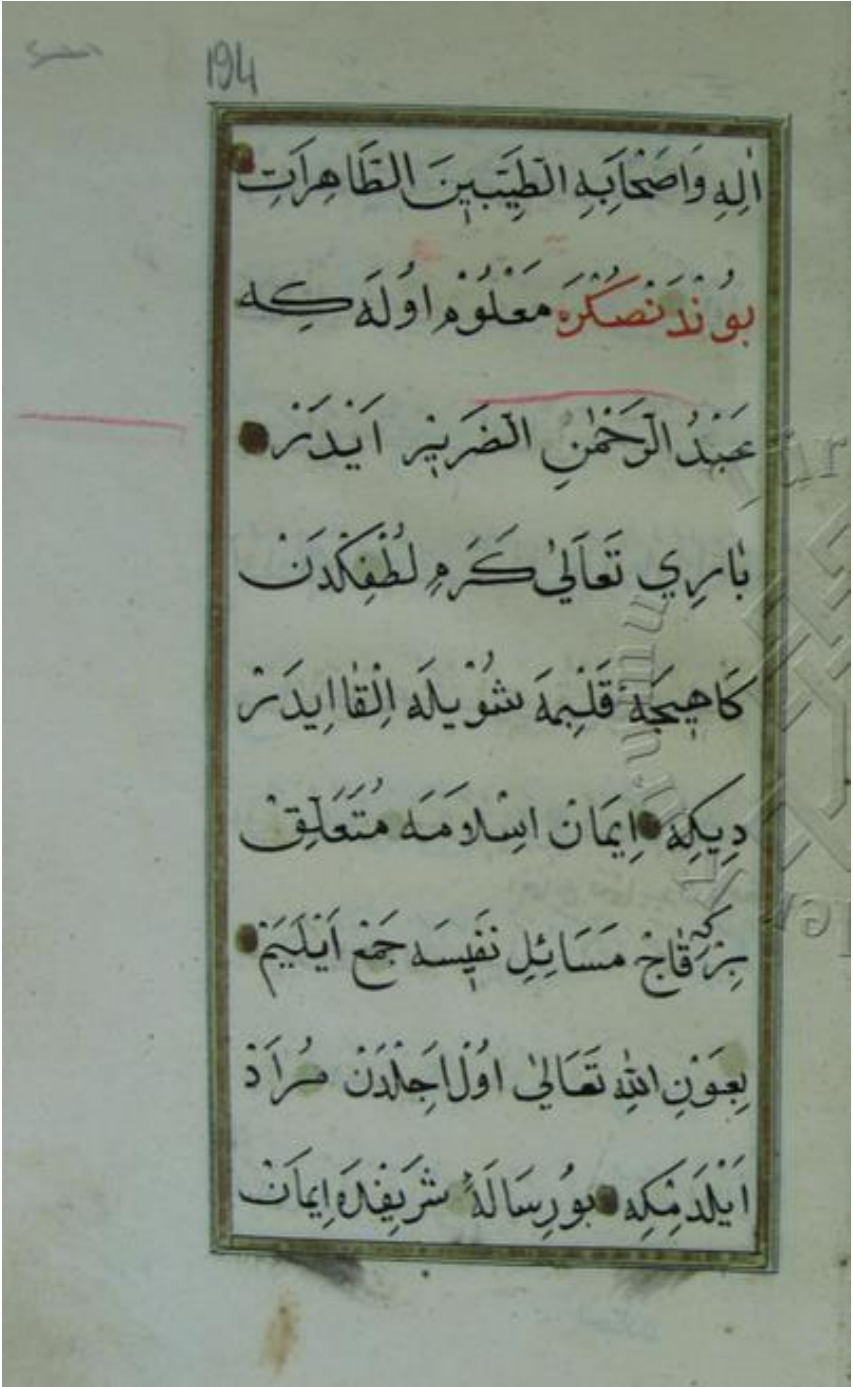 194
اٰلِهِ وَاَصْحَابِهِ الطَّيِّبِينَ الطَّاهِرَاتِ
بُونْدَنْصُكْرَه مَعْلُومْ اوُلَه كِه
عَبْدُ الرَّحْمٰنِ الضَّرِيرِ اَيْدَرْ
بَارِي تَعَالٰى كَرَمِ لُطْفِكْدَنْ
كَاهِيجَهْ قَلْبِمَه شُوْيلَه اِلْقَا اِيدَرْ
دِيكِه اِيمَانْ اِسْلَامَه مُتَعَلِّقْ
بِرْ قَاجْ مَسَائِلِ نَفِيسَه جَمْعْ اَيْلَيَمْ
بِعَوْنِ اللهِ تَعَالٰى اوُلْ اَجِلْدَنْ مُرَادْ
اَيْلَدِمْكِه بُو رِسَالَۀ شَرِيفْدَه اِيمَانْ